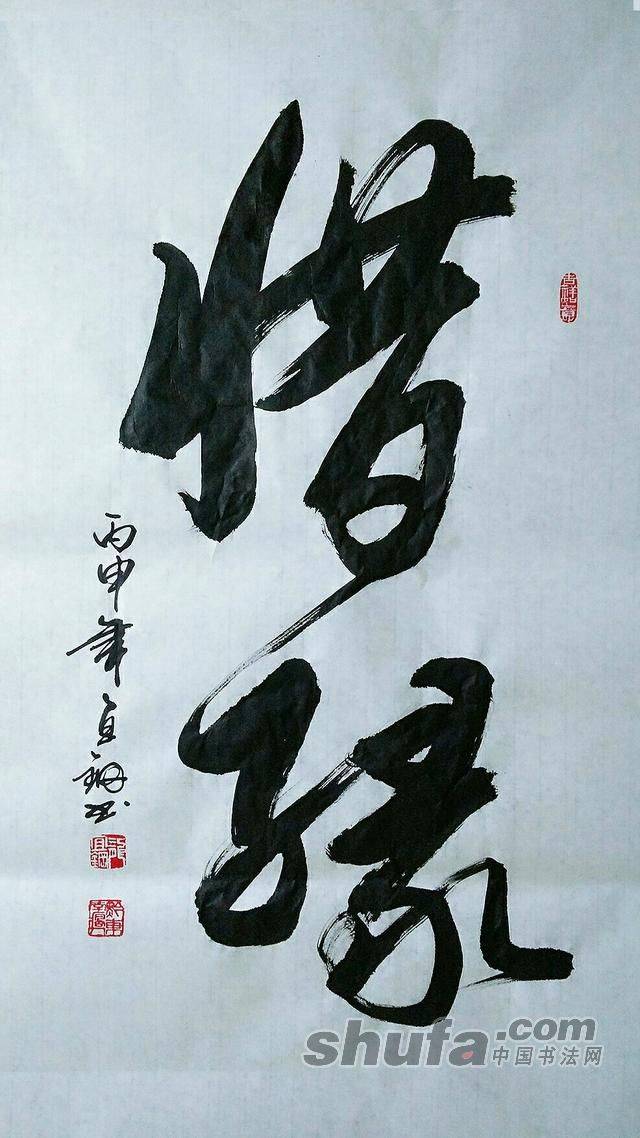 惜缘
丙申年
shufa.com
中国书法网